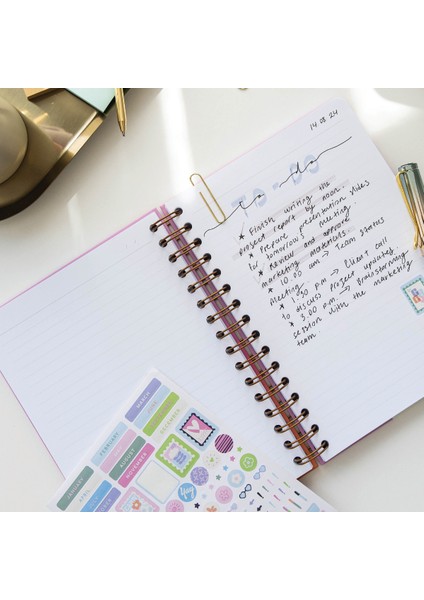 14.08.24
To-do
* Finish writing the
project report by noon.
* Prepare presentation slides
for tomorrow's meeting.
* Review and approve
marketing materials.
* 10.00 am → Team status
Meeting
* 1.30 pm → Client call
to discuss project updates.
* 3.00 p.m. → Brainstorming
session with the marketing
team
MARCH
JULY
DECEMBER
FEBRUARY
AUGUST
NOVEMBER
JANUARY
APRIL
yay